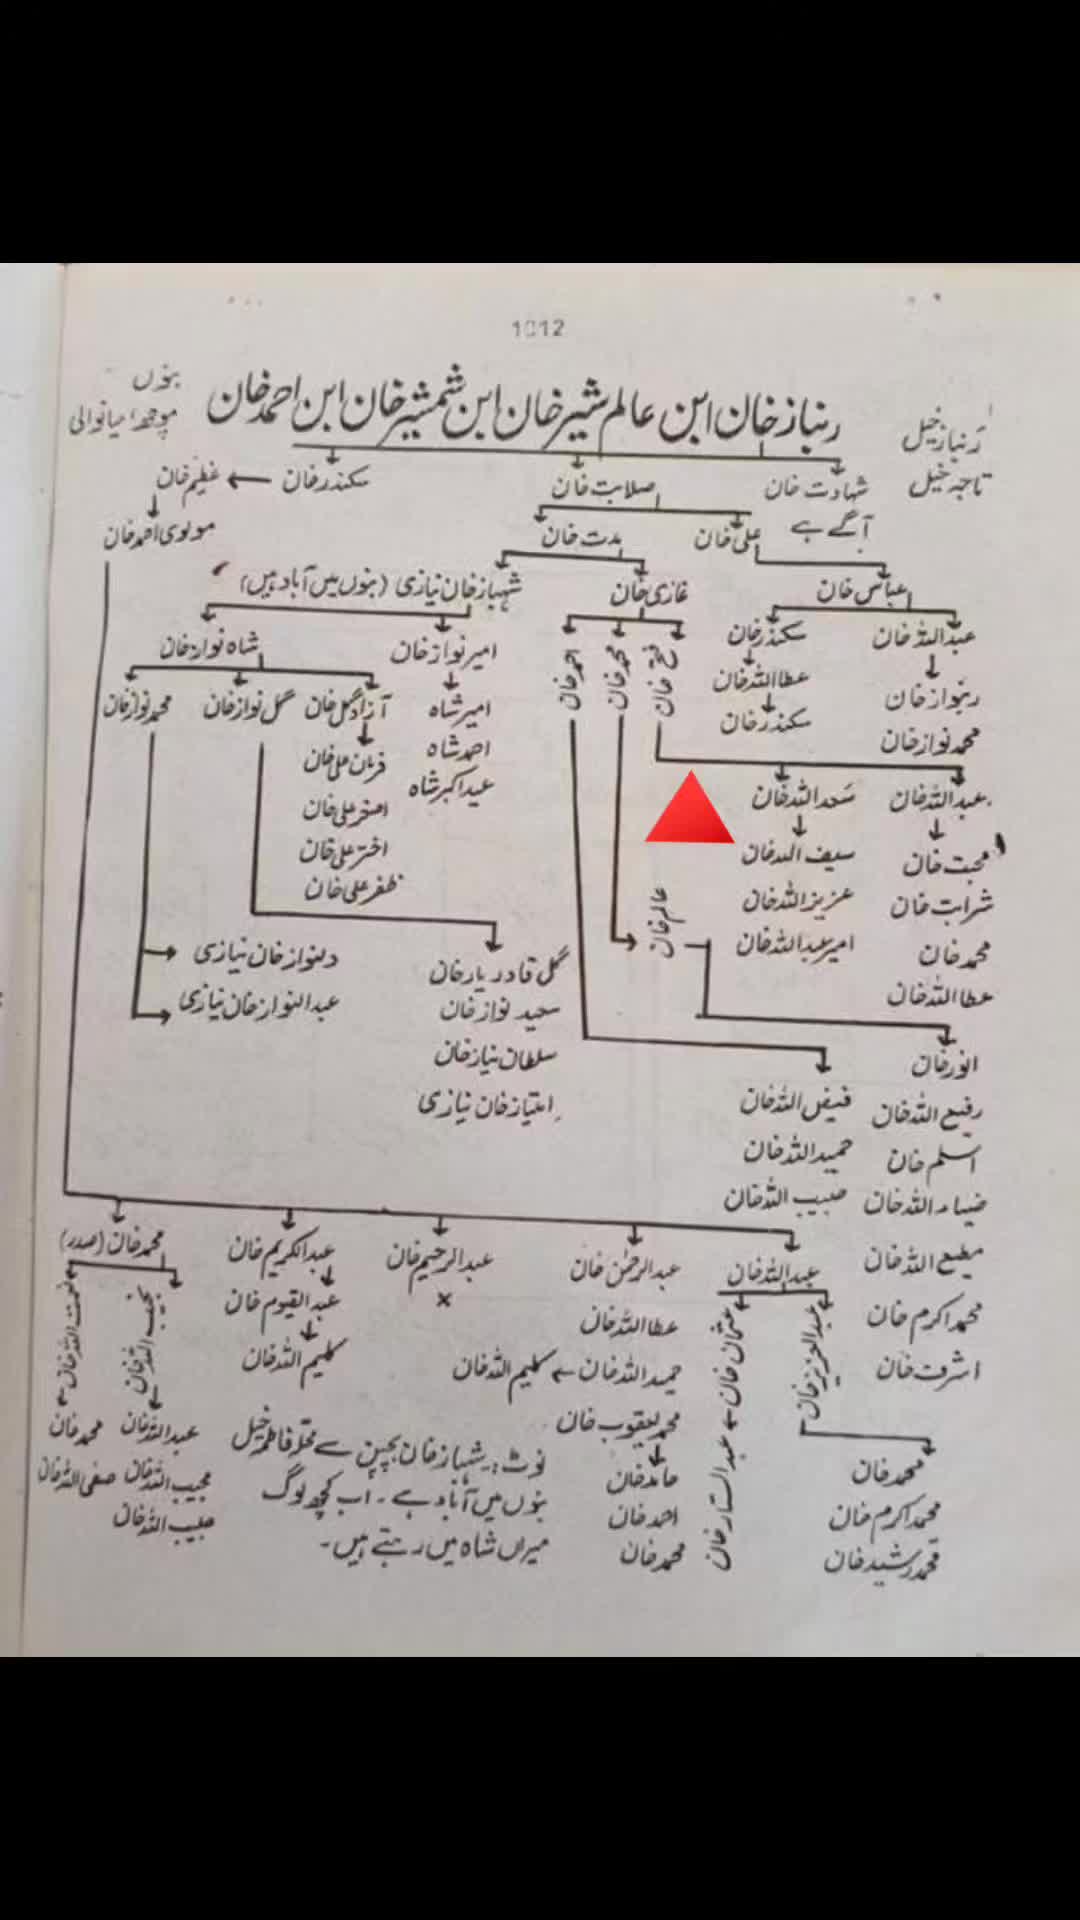 1012
رنباز خان ابن عالم شیر خان ابن شمشیر خان ابن احمد خان
رنباز خیل
تاجہ خیل
بنوں
موچھ، میانوالی
شہادت خان
آگے ہے
صلابت خان
سکندر خان ← عظیم خان
مولوی احمد خان
علی خان
مدت خان
عباس خان
غازی خان
شہباز خان نیازی (بنوں میں آباد ہیں)
عبداللہ خان
ربنواز خان
محمد نواز خان
سکندر خان
عطااللہ خان
سکندر خان
فتح خان
محمد خان
احمد خان
امیر نواز خان
امیر شاہ
احمد شاہ
عبداکبر شاہ
شاہ نواز خان
آزاد گل خان
گل نواز خان
محمد نواز خان
قربان علی خان
اصغر علی خان
اختر علی خان
ظفر علی خان
عبداللہ خان
محبت خان
شرابت خان
محمد خان
عطااللہ خان
سعد اللہ خان
سیف اللہ خان
عزیز اللہ خان
امیر عبداللہ خان
عالم خان
دلنواز خان نیازی
عبدالنواز خان نیازی
گل قادر یار خان
سعید نواز خان
سلطان نیاز خان
امتیاز خان نیازی
انور خان
رفیع اللہ خان
اسلم خان
ضیاء اللہ خان
مطیع اللہ خان
محمد اکرم خان
اشرف خان
فیض اللہ خان
حمید اللہ خان
حبیب اللہ خان
عبداللہ خان
عبدالرحمٰن خان
عبدالرحیم خان
×
عبدالکریم خان
محمد خان (صدر)
عبدالعزیز خان
عثمان خان ← عبدالستار خان
محمد خان
محمد اکرم خان
محمد رشید خان
عطااللہ خان
حمید اللہ خان ← کلیم اللہ خان
محمد یعقوب خان
حامد خان
احمد خان
محمد خان
عبدالقیوم خان
کلیم اللہ خان
نجیب اللہ خان
نعمت اللہ خان
عبداللہ خان
مجیب اللہ خان
حبیب اللہ خان
محمد خان
صفی اللہ خان
نوٹ: شہباز خان بچپن سے محلہ فاطمہ خیل
بنوں میں آباد ہے۔ اب کچھ لوگ
میراں شاہ میں رہتے ہیں۔